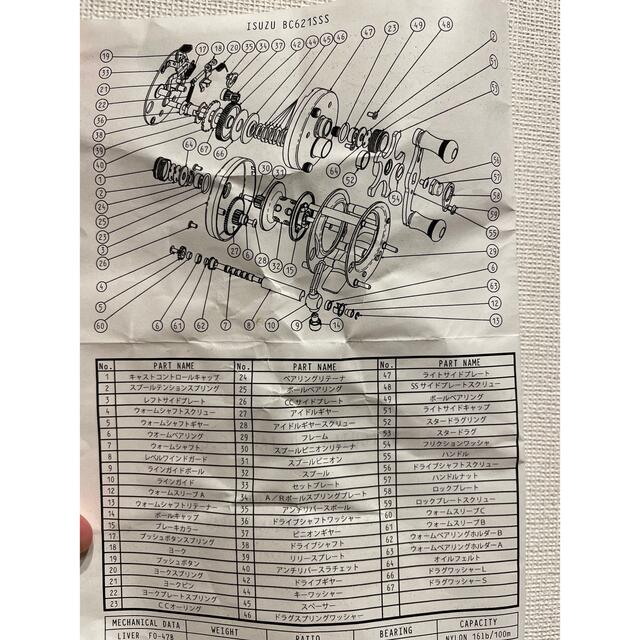 ISUZU BC621SSS
19
17
18
20
35
34
37
42
44
45
46
47
23
48
2
33
21
22
36
38
39
40
64
1
2
24
25
3
26
4
5
60
6
61
62
7
8
10
9
14
12
13
63
29
55
59
58
57
56
54
52
49
53
51
67
66
30
31
27
28
32
15
No. PART NAME
1 キャストコントロールキャップ
2 スプールテンションスプリング
3 レフトサイドプレート
4 ウォームシャフトスクリュー
5 ウォームシャフトギヤー
6 ウォームベアリング
7 ウォームシャフト
8 レベルワインドガード
9 ラインガイドポール
10 ラインガイド
12 ウォームスリーブA
13 ウォームシャフトリテーナー
14 ポールキャップ
15 ブレーキカラー
17 プッシュボタンスプリング
18 ヨーク
19 プッシュボタン
20 ヨークスプリング
21 ヨークピン
22 ヨークプレートスプリング
23 CCオーリング
No. PART NAME
24 ベアリングリテーナ
25 ボールベアリング
26 CCサイドプレート
27 アイドルギヤー
28 アイドルギヤースクリュー
29 フレーム
30 スプールピニオンリテーナ
31 スプールピニオン
32 スプール
33 セットプレート
34 A/Rポールスプリングプレート
35 アンチリバースポール
36 ドライブシャフトワッシャー
37 ピニオンギヤー
38 ドライブシャフト
39 リリースプレート
40 アンチリバースラチェット
42 ドライブギヤー
44 キーワッシャー
45 スペーサー
46 ドラグスプリングワッシャー
No. PART NAME
47 ライトサイドプレート
48 SSサイドプレートスクリュー
49 ボールベアリング
51 ライトサイドキャップ
52 スタードラグリング
53 スタードラグ
54 フリクションワッシャ
55 ハンドル
56 ドライブシャフトスクリュー
57 ハンドルナット
58 ロックプレート
59 ロックプレートスクリュー
60 ウォームスリーブC
61 ウォームスリーブB
62 ウォームベアリングホルダーB
63 ウォームベアリングホルダーA
64 オイルフェルト
66 ドラグワッシャーL
67 ドラグワッシャーS
MECHANICAL DATA WEIGHT RATIO BEARING CAPACITY
LIVER FO-478 NYLON 16lb/100m